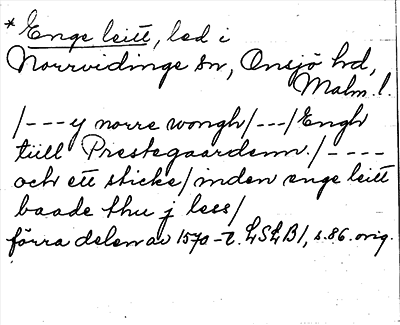 * Enge leitt, led i
Norrvidinge sn, Onsjö hd,
Malm. l.
/---y norre wongh/---/Engh
tiill Prestegaardenn./----
och ett sticke/inden enge leitt
baade thu j lees/
förra delen av 1570-t. LSLB1, s. 86. orig.